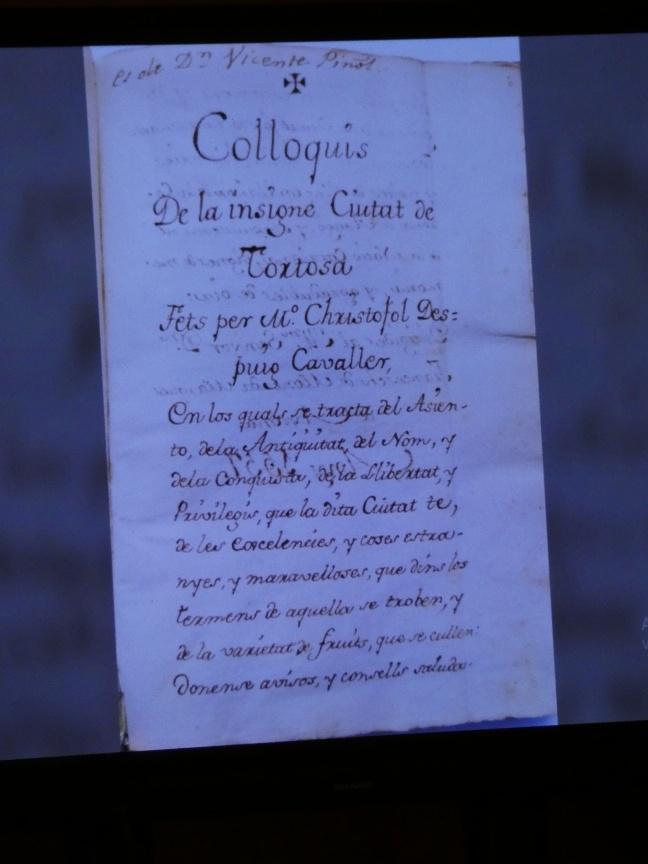 es de Dn. Vicente Pinol.
Colloquis
De la insigne Ciutat de
Tortosa
Fets per Mo. Christofol Des=
puig Cavaller,
En los quals se tracta del Asien-
to, de la Antiquitat, del Nom, y
de la Conquista, de la Llibertat, y
Privilegis, que la dita Ciutat te,
de les excelencies, y coses estra-
nyes, y maravelloses, que dins los
termens de aquella se troben, y
de la varietat de fruits, que se cullen:
Donense avisos, y consells saluda-